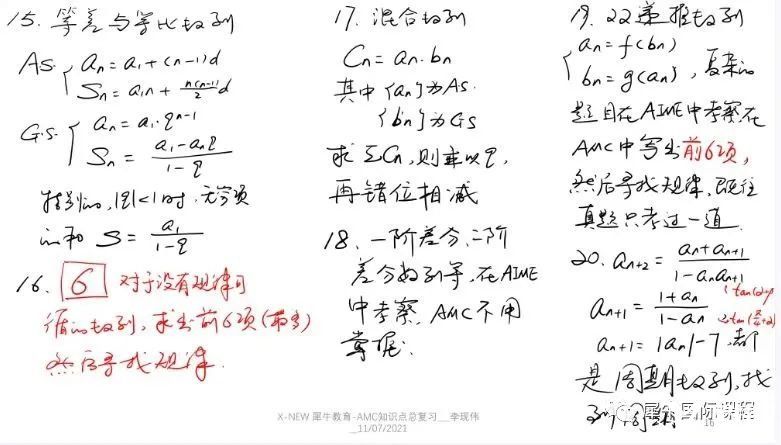 15. 等差与等比数列
A.S. { an = a1 + (n-1)d
Sn = a1n + n(n-1)/2 d
G.S. { an = a1·q^(n-1)
Sn = (a1 - anq)/(1-q)
特别的, |q|<1时, 无穷项
的和 S = a1/(1-q)
16. 6 对于没有规律可
循的数列, 求出前6项(最多)
然后寻找规律.
17. 混合数列
Cn = an·bn
其中{an}为A.S.
{bn}为G.S
求ΣCn, 则乘以q,
再错位相减
18. 一阶差分、二阶
差分数列等, 在AIME
中考察, AMC不用
掌握.
19. 双递推数列
{ an = f(bn)
bn = g(an) , 复杂的
题目在AIME中考察在
AMC中写出前6项,
然后寻找规律, 既往
真题只考过一道.
20. an+2 = (an + an+1)/(1 - an an+1)
an+1 = (1+an)/(1-an)
an+1 = |an| - 7, 都
是周期数列, 找
到周期
X-NEW 犀牛教育-AMC知识点总复习__李现伟
_11/07/2021
犀牛国际课程
16